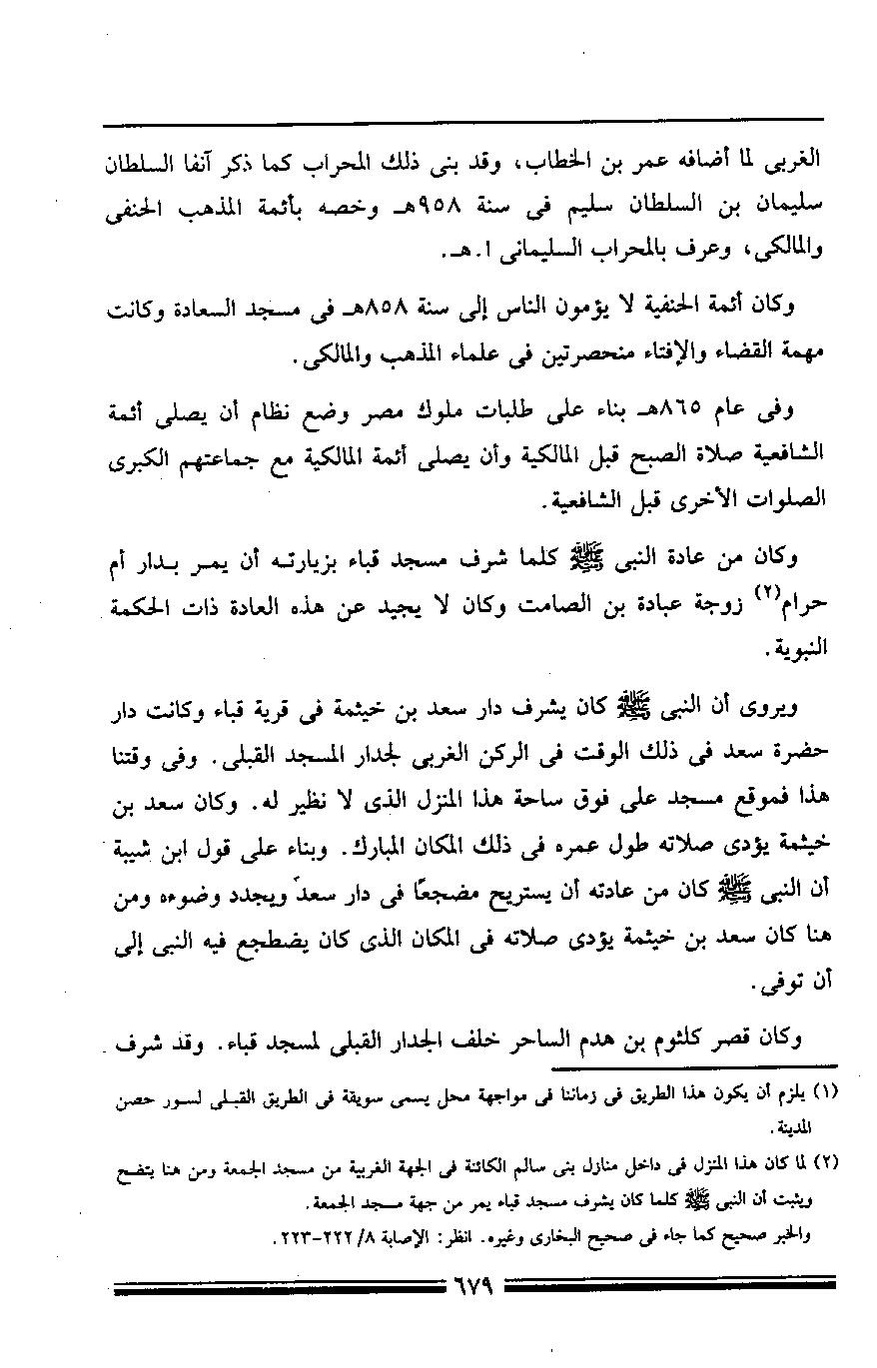 الغربى لما أضافه عمر بن الخطاب، وقد بنى ذلك المحراب كما ذكر آنفا السلطان
سليمان بن السلطان سليم فى سنة ٩٥٨هـ وخصه بأئمة المذهب الحنفى
والمالكى، وعرف بالمحراب السليمانى ا.هـ.
وكان أئمة الحنفية لا يؤمون الناس إلى سنة ٨٥٨هـ فى مسجد السعادة وكانت
مهمة القضاء والإفتاء منحصرتين فى علماء المذهب والمالكى.
وفى عام ٨٦٥هـ بناء على طلبات ملوك مصر وضع نظام أن يصلى أئمة
الشافعية صلاة الصبح قبل المالكية وأن يصلى أئمة المالكية مع جماعتهم الكبرى
الصلوات الأخرى قبل الشافعية.
وكان من عادة النبى ﷺ كلما شرف مسجد قباء بزيارته أن يمر بدار أم
حرام(٢) زوجة عبادة بن الصامت وكان لا يجيد عن هذه العادة ذات الحكمة
النبوية.
ويروى أن النبى ﷺ كان يشرف دار سعد بن خيثمة فى قرية قباء وكانت دار
حضرة سعد فى ذلك الوقت فى الركن الغربى لجدار المسجد القبلى. وفى وقتنا
هذا فموقع مسجد على فوق ساحة هذا المنزل الذى لا نظير له. وكان سعد بن
خيثمة يؤدى صلاته طول عمره فى ذلك المكان المبارك. وبناء على قول ابن شيبة
أن النبى ﷺ كان من عادته أن يستريح مضجعًا فى دار سعد ويجدد وضوءه ومن
هنا كان سعد بن خيثمة يؤدى صلاته فى المكان الذى كان يضطجع فيه النبى إلى
أن توفى.
وكان قصر كلثوم بن هدم الساحر خلف الجدار القبلى لمسجد قباء. وقد شرف
(١) يلزم أن يكون هذا الطريق فى زماننا فى مواجهة محل يسمى سويقة فى الطريق القبلى لسور حصن
المدينة.
(٢) لما كان هذا المنزل فى داخل منازل بنى سالم الكائنة فى الجهة الغربية من مسجد الجمعة ومن هنا يتضح
ويثبت أن النبى ﷺ كلما كان يشرف مسجد قباء يمر من جهة مسجد الجمعة.
والخبر صحيح كما جاء فى صحيح البخارى وغيره. انظر: الإصابة ٨/ ٢٢٢-٢٢٣.
٦٧٩